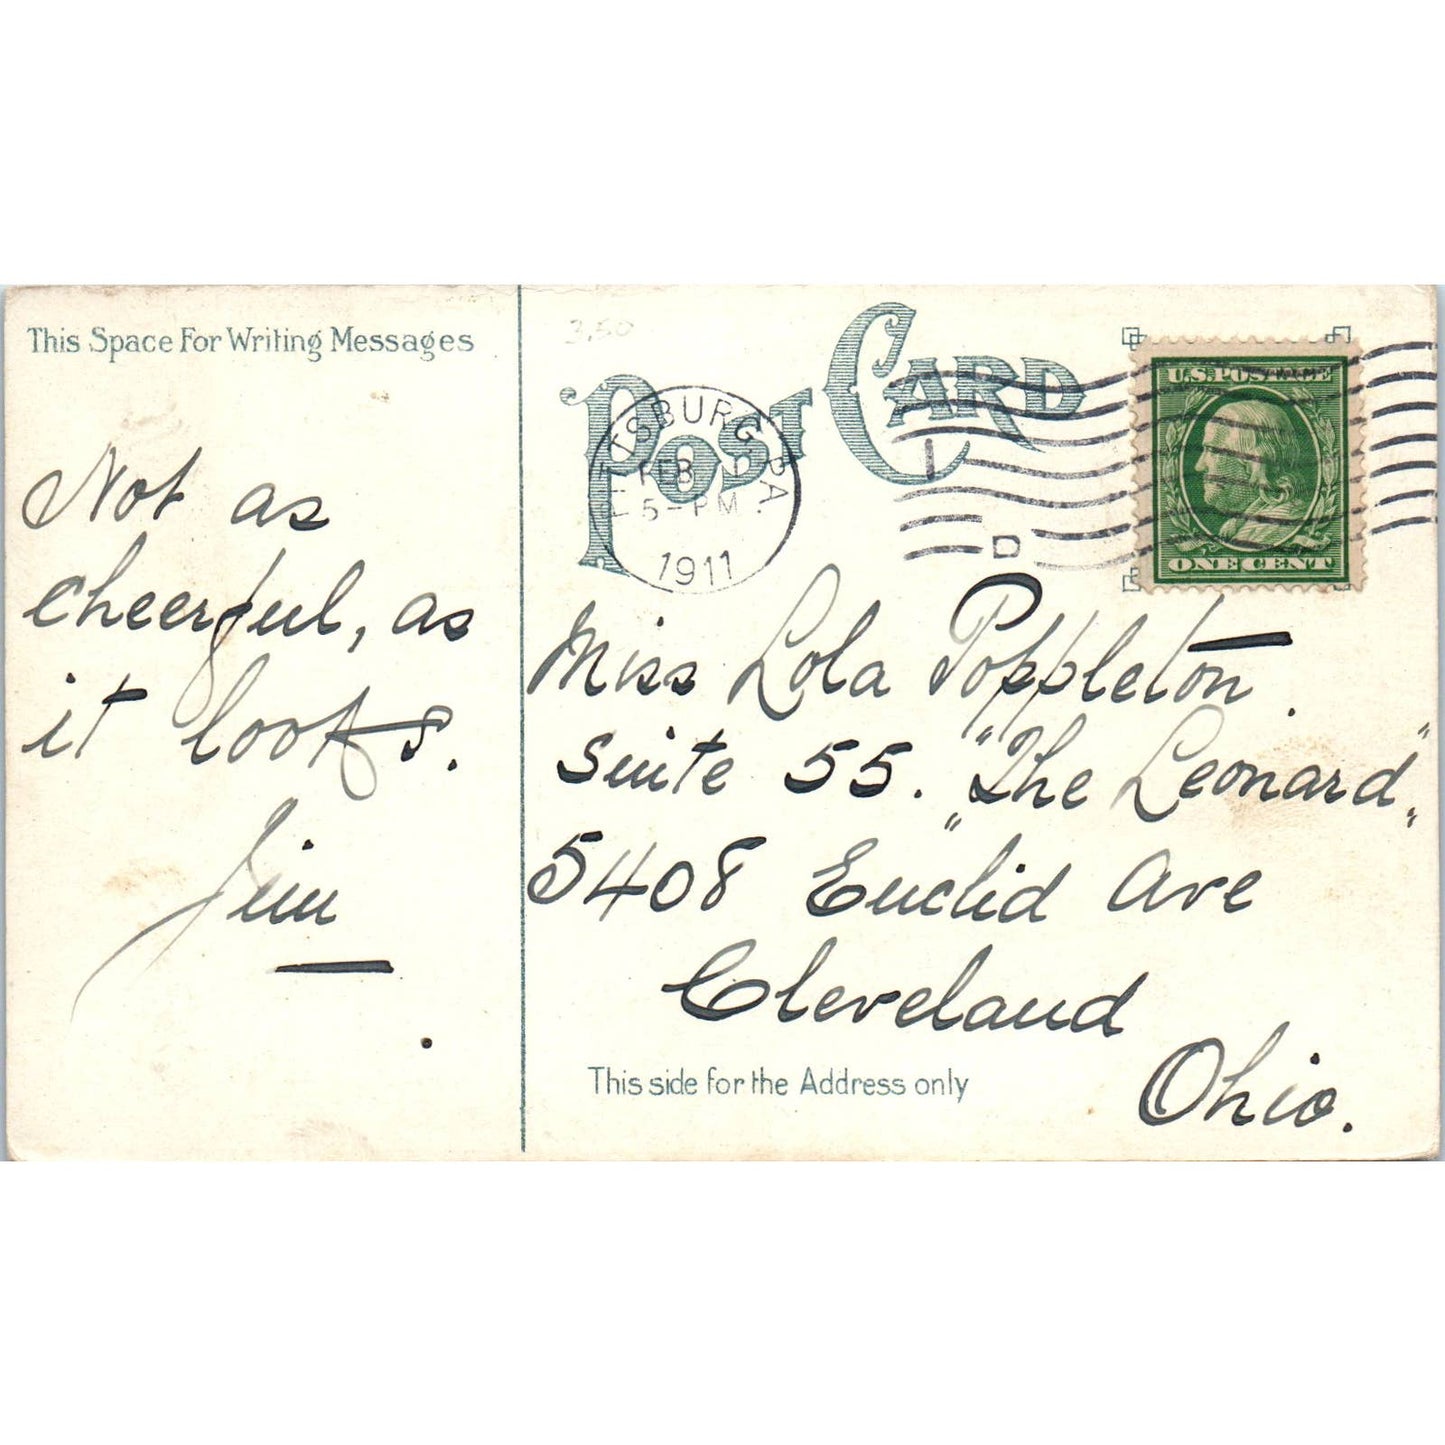 This Space For Writing Messages
Not as
cheerful, as
it looks.
Jim
3.50
POST CARD
PITTSBURG, PA.
FEB 1
5-PM
1911
1
D
U.S. POSTAGE
ONE CENT
Miss Lola Poppleton.
Suite 55. "The Leonard"
5408 Euclid Ave
Cleveland
Ohio.
This side for the Address only